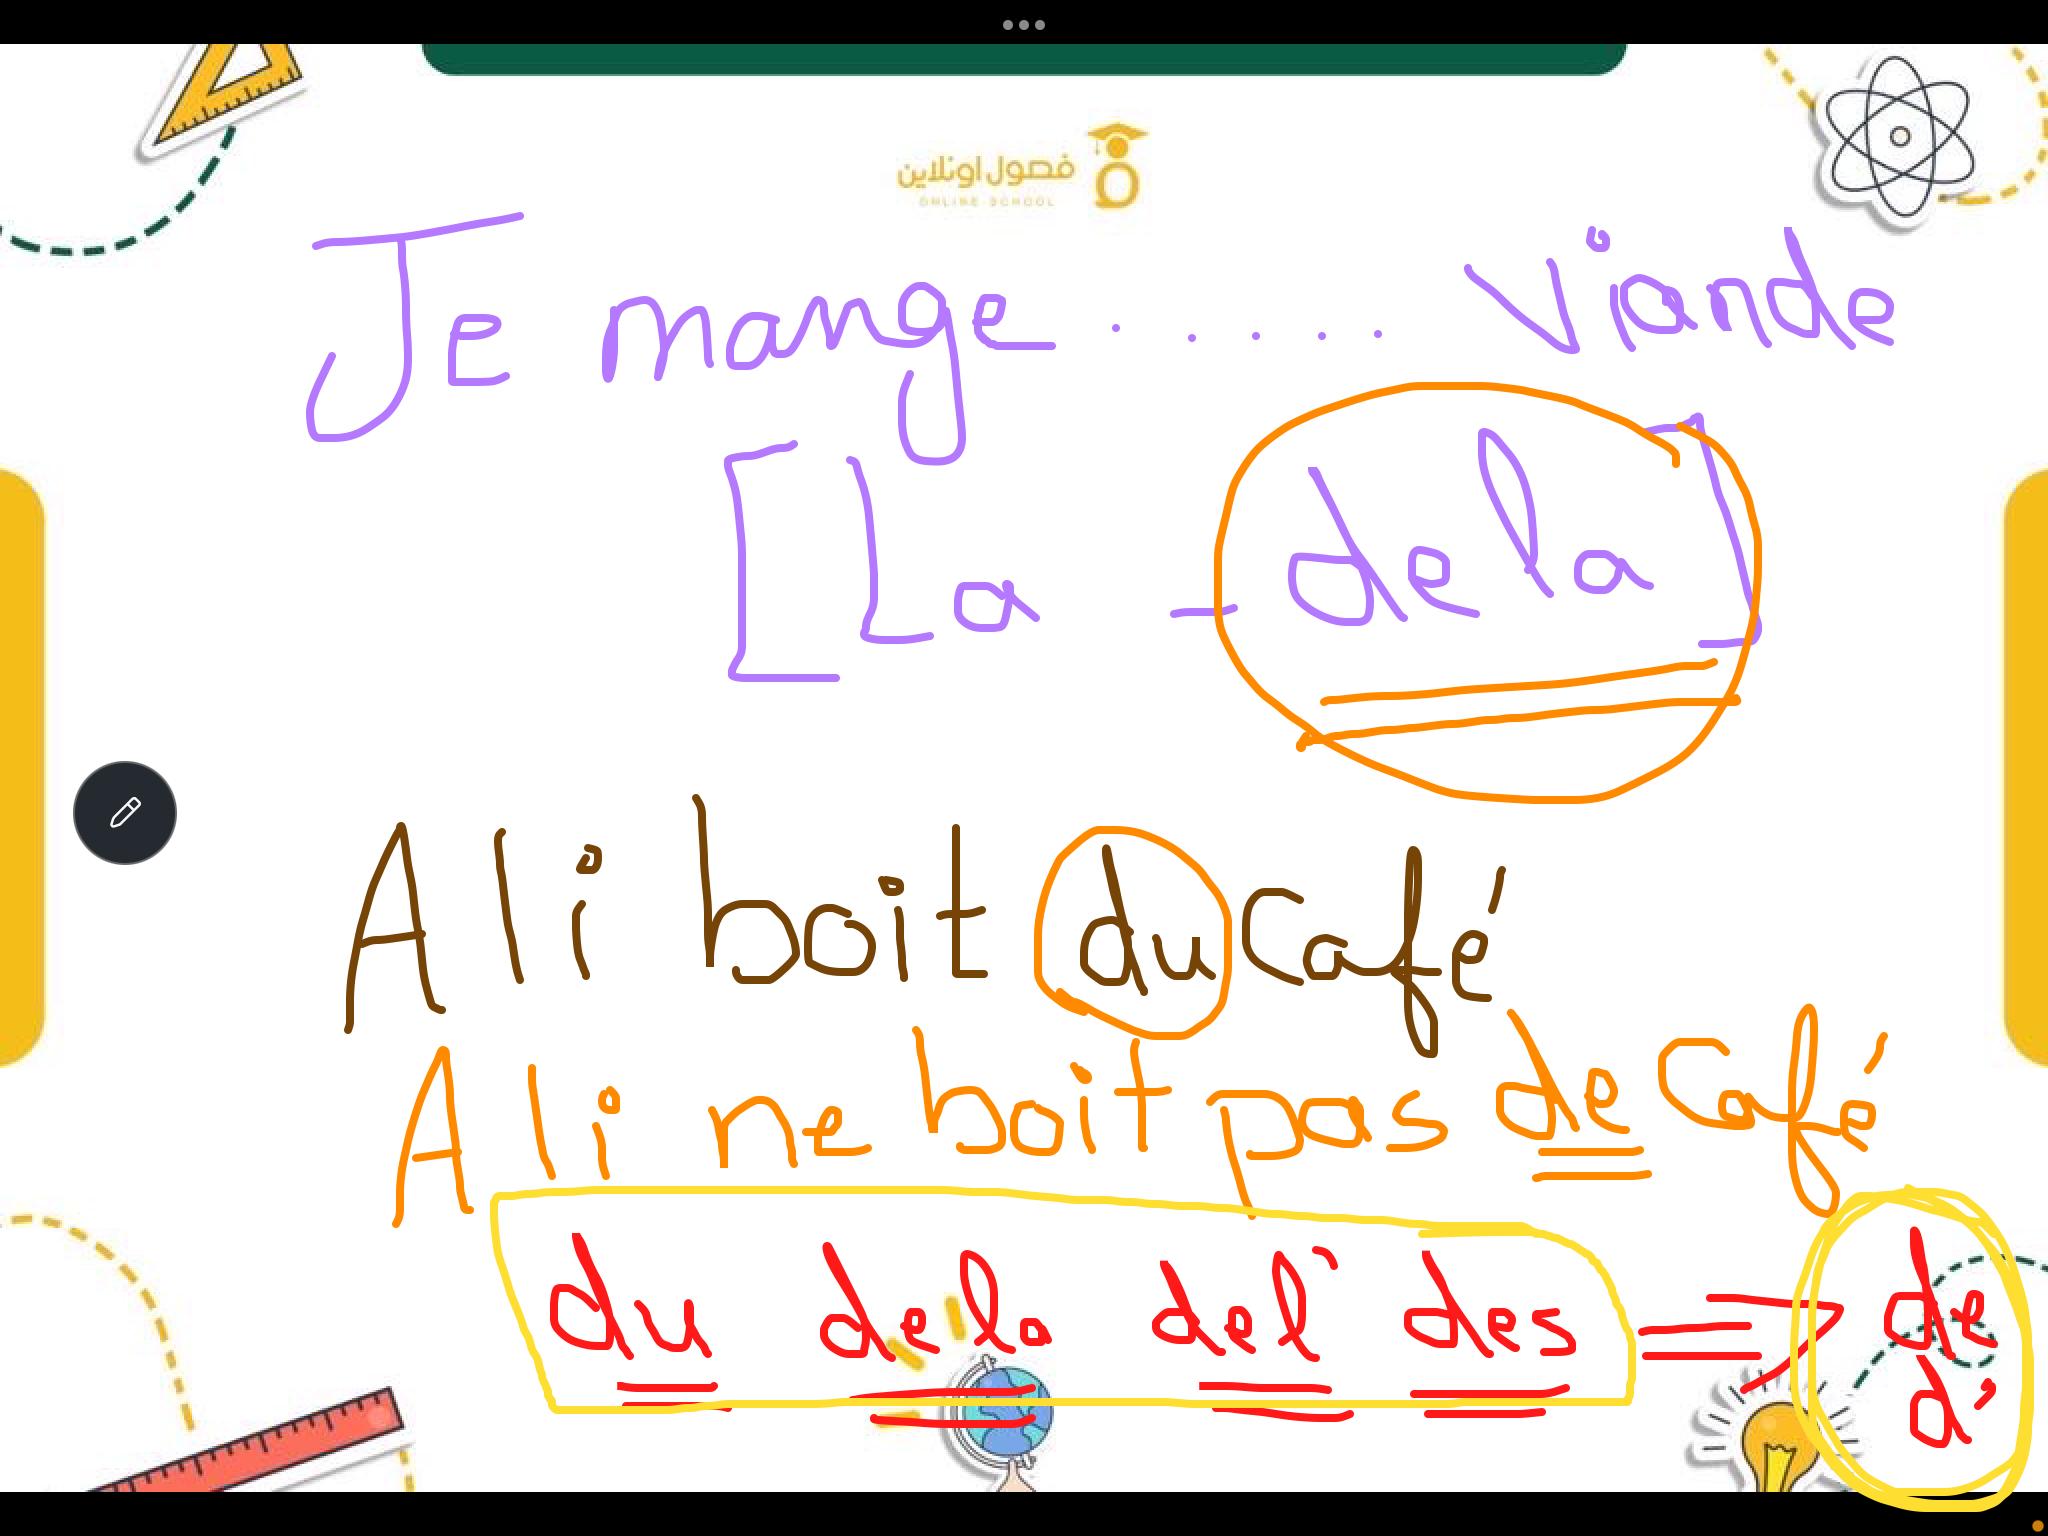 فصول اونلاين
ONLINE SCHOOL
Je mange ..... Viande
[La - de la]
Ali boit du Café
Ali ne boit pas de Café
du de la del' des ⇒ de
d'